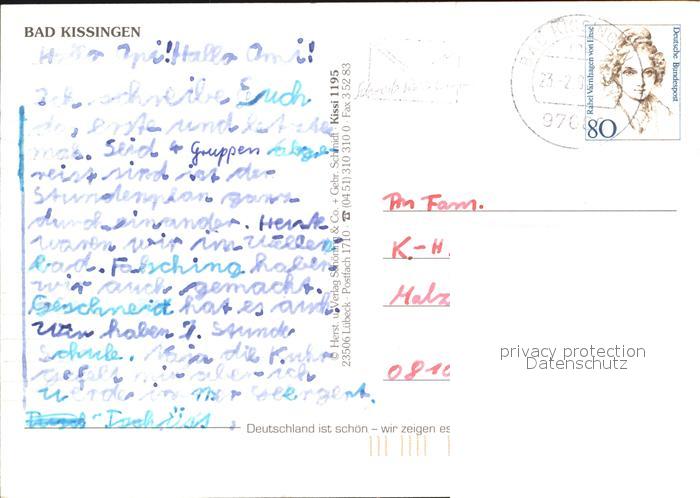 BAD KISSINGEN
Hallo Opi! Hallo Omi!
Ich schreibe Euch
das erste und letzte
mal. Seid 4 Gruppen abge-
reist sind ist der
Stundenplan ganz
durcheinander. Heute
waren wir im Wellen-
bad. Fahsching haben
wir auch gemacht.
Geschneid hat es auch.
Wir haben 1. Stunde
Schule. die Kuhr
gefelt mir aber ich
werde in mer
Tschüss
© Herst. u. Verlag Schöning & Co. + Gebr. Schmidt · Kissi 1195
23506 Lübeck · Postfach 1710 · ☎ (04 51) 310 310 0 · Fax 3 52 83
BAD KISSINGEN
23.-2.
976
Rahel Varnhagen von Ense
Deutsche Bundespost
80
An Fam.
K.-H.
Malz
0810
privacy protection
Datenschutz
Deutschland ist schön – wir zeigen es